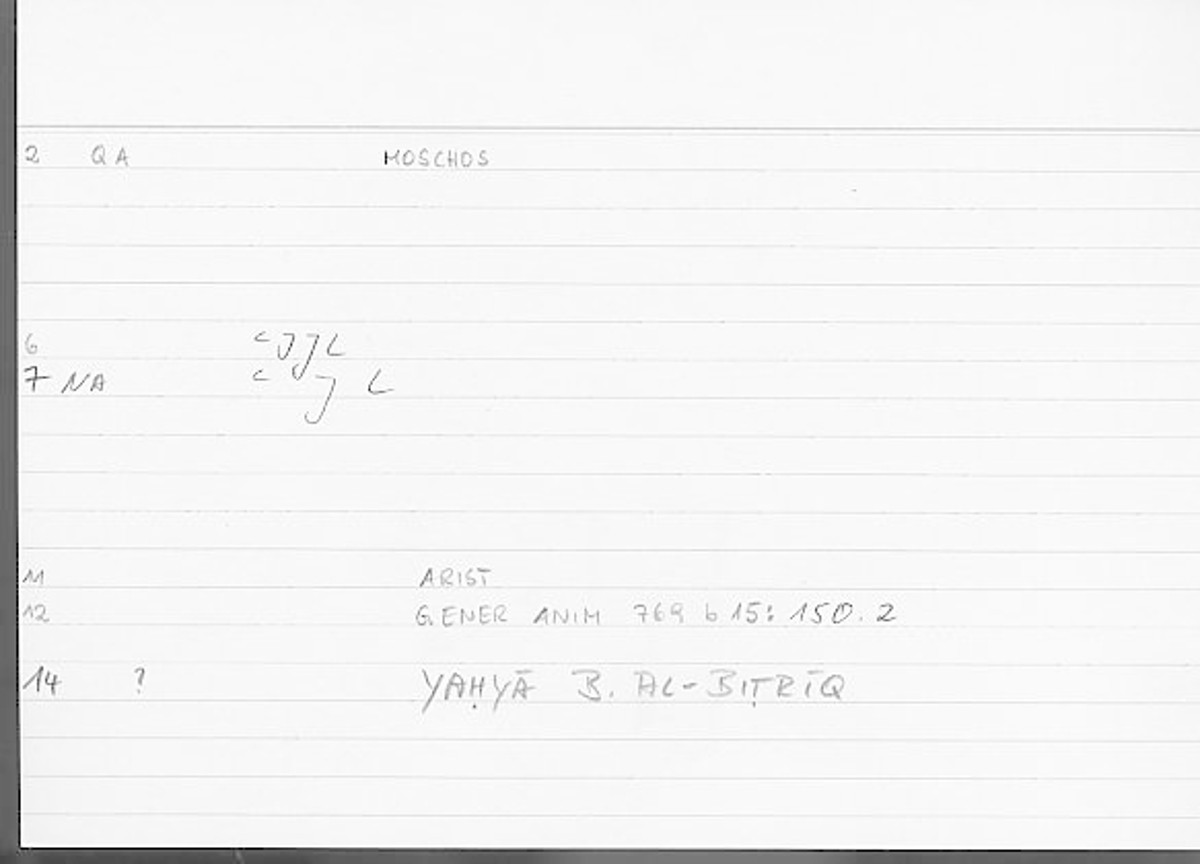 2 QA MOSCHOS
6
7 NA
11 ARIST
12 GENER ANIM 769 b 15: 150.2
14 ? YAḤYĀ B. AL-BIṬRĪQ